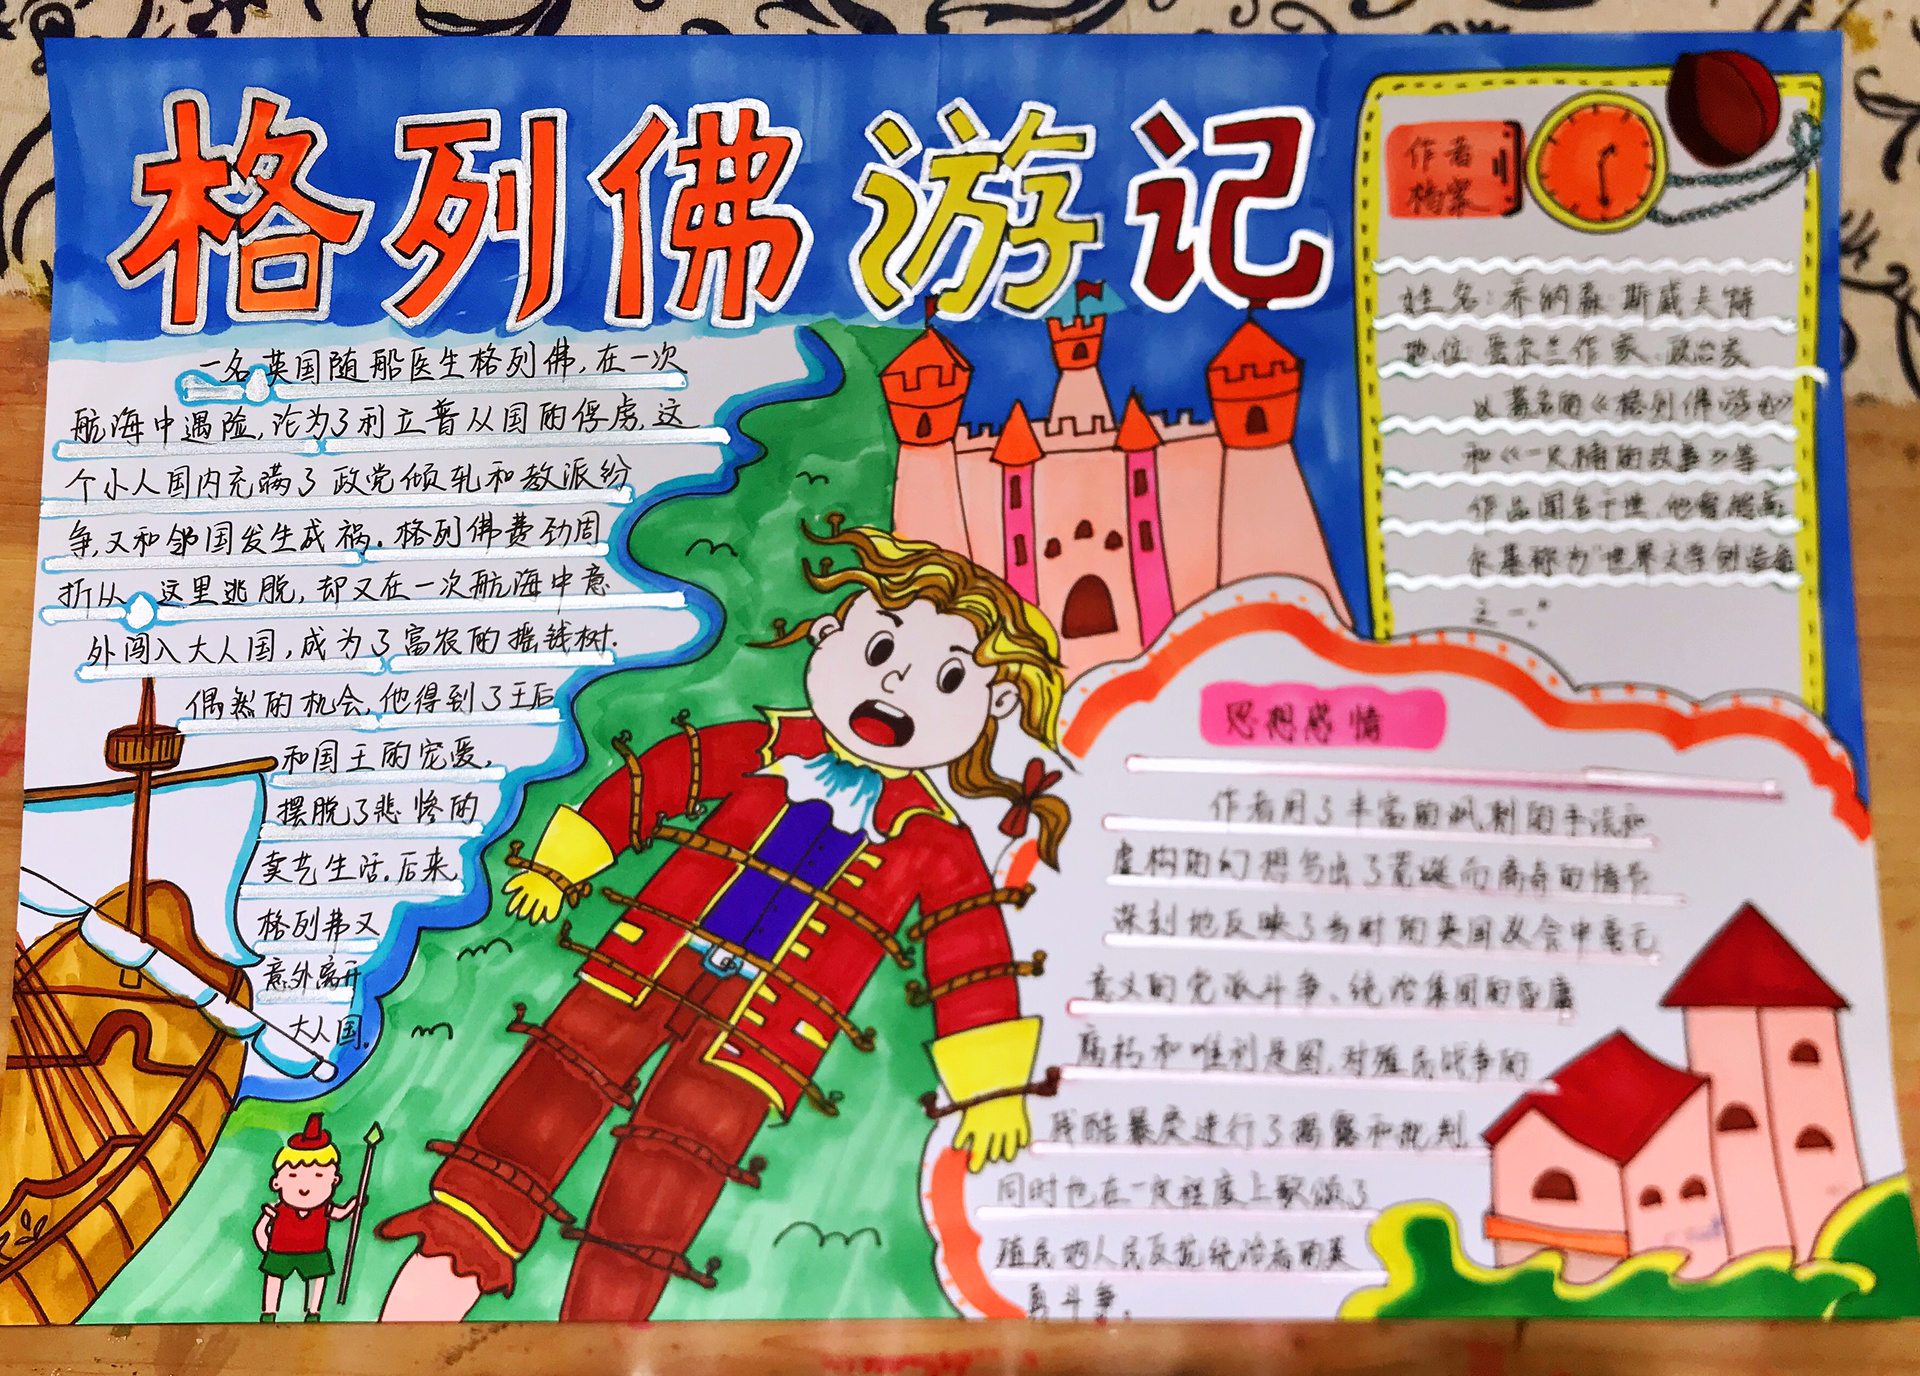 格列佛游记
一名英国随船医生格列佛,在一次
航海中遇险,沦为了利立普从国的俘虏,这
个小人国内充满了政党倾轧和教派纷
争,又和邻国发生成祸.格列佛费劲周
折从 这里逃脱,却又在一次航海中意
外闯入大人国,成为了富农的摇钱树.
偶然的机会,他得到了王后
和国王的宠爱,
摆脱了悲惨的
卖艺生活.后来,
格列弗又
意外离开
大人国.
作者
档案
姓名:乔纳森·斯威夫特
地位:爱尔兰作家、政治家
以著名的《格列佛游记》
和《一只桶的故事》等
作品闻名于世.他曾被高
尔基称为"世界文学创造者
之一."
思想感情
作者用了丰富的讽刺的手法和
虚构的幻想写出了荒诞而离奇的情节
深刻地反映了当时的英国议会中毫无
意义的党派斗争、统治集团的昏庸
腐朽和唯利是图.对殖民战争的
残酷暴戾进行了揭露和批判.
同时也在一定程度上歌颂了
殖民地人民反抗统治者的英
勇斗争.